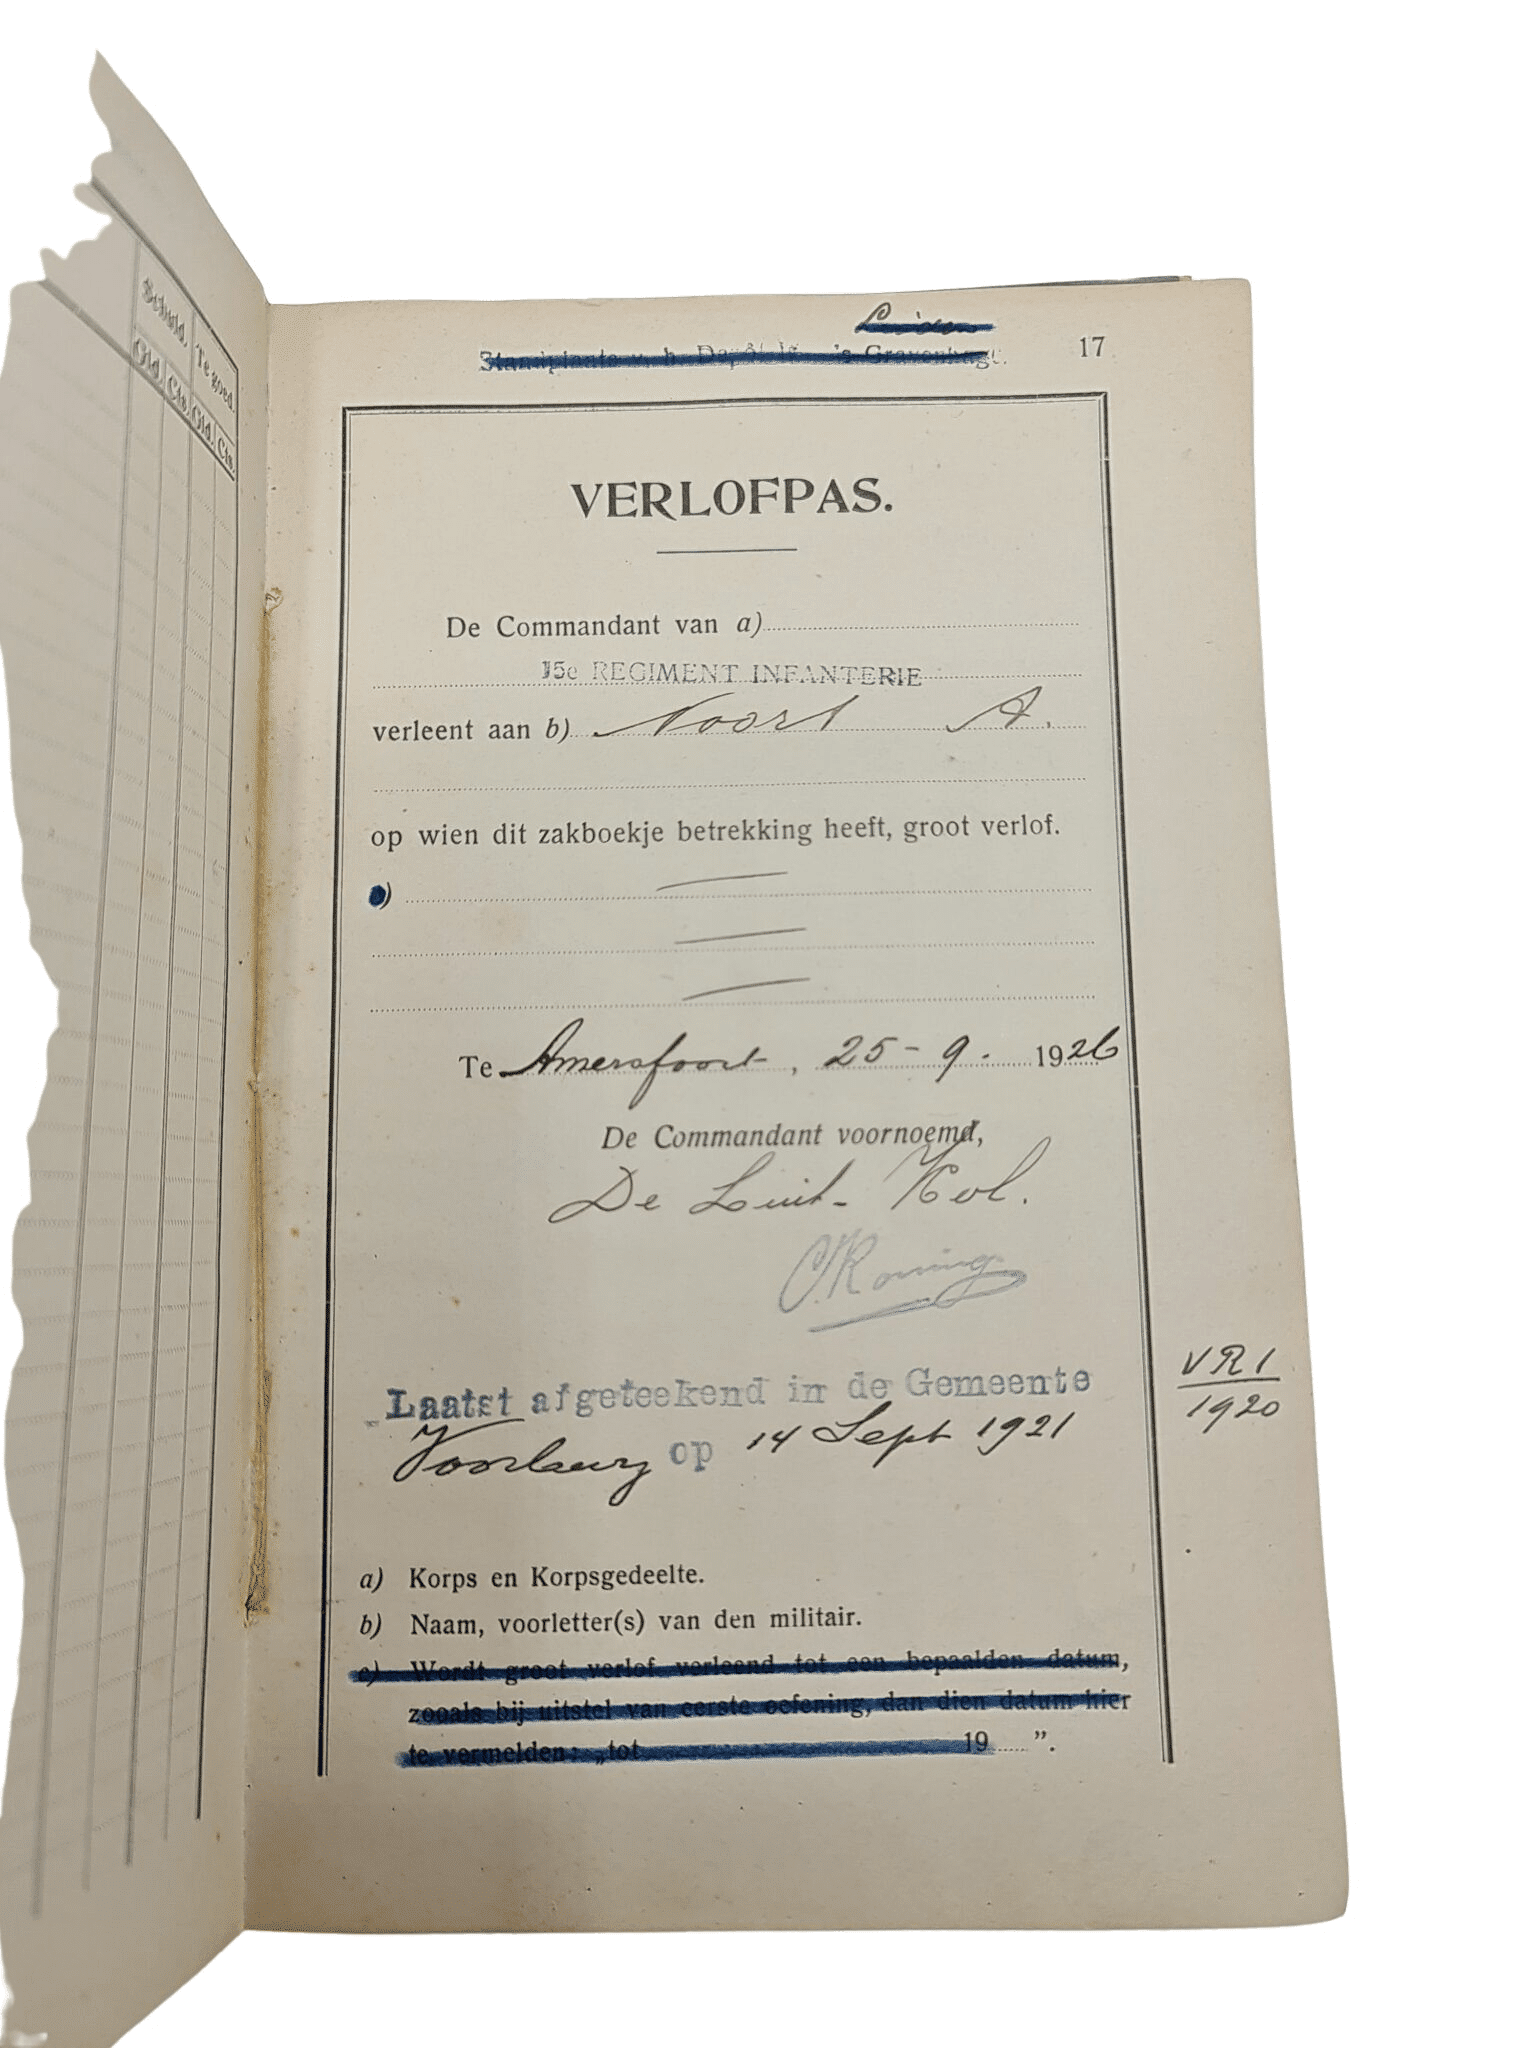 Schuld. Te goed.
Gld. Cts. Gld. Cts.
Leiden
Standplaats v. h. Depôt is 's Gravenhage.
17
VERLOFPAS.
De Commandant van a)
15e REGIMENT INFANTERIE
verleent aan b) Noort A.
op wien dit zakboekje betrekking heeft, groot verlof.
)
Te Amersfoort, 25-9. 1926
De Commandant voornoemd,
De Luit. Kol.
C. Koning
Laatst afgeteekend in de Gemeente
Voorburg op 14 Sept 1921
VR 1
1920
a) Korps en Korpsgedeelte.
b) Naam, voorletter(s) van den militair.
c) Wordt groot verlof verleend tot een bepaalden datum,
zooals bij uitstel van eerste oefening, dan dien datum hier
te vermelden: „tot 19 ”.